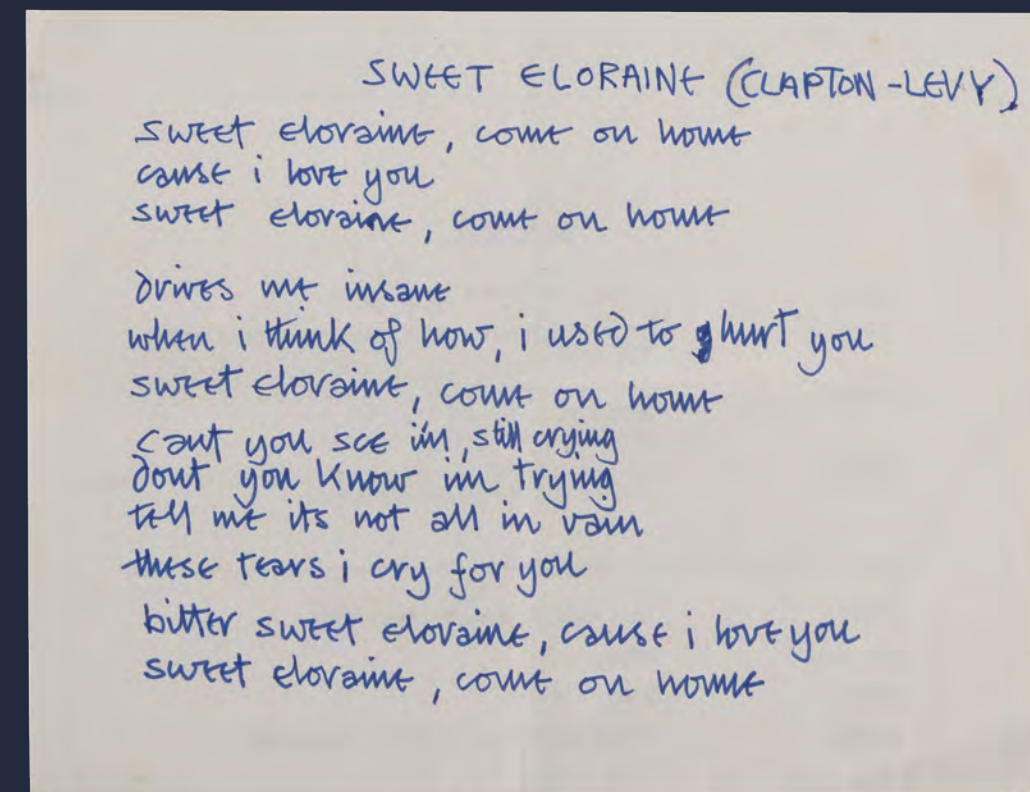 SWEET ELORAINE (CLAPTON-LEVY)
sweet eloraine, come on home
cause i love you
sweet eloraine, come on home
drives me insane
when i think of how, i used to hurt you
sweet eloraine, come on home
cant you see im, still crying
dont you know im trying
tell me its not all in vain
these tears i cry for you
bitter sweet eloraine, cause i love you
sweet eloraine, come on home